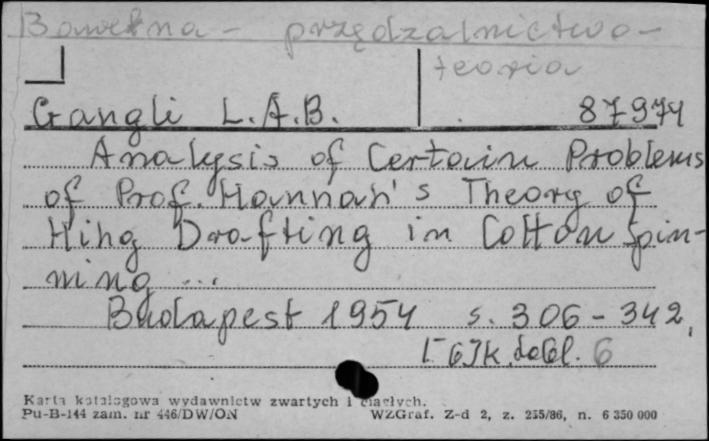 Bawełna - przędzalnictwo -
teoria
Gangli L.A.B. 87974
Analysis of Certain Problems
of Prof. Hannah's Theory of
Hihg Drafting in Cotton Spin-
ning ...
Budapest 1954 s. 306-342.
dobl. 6
Karta katalogowa wydawnictw zwartych i ciągłych.
Pu-B-144 zam. nr 446/DW/ON WZGraf. Z-d 2, z. 255/86, n. 6 350 000